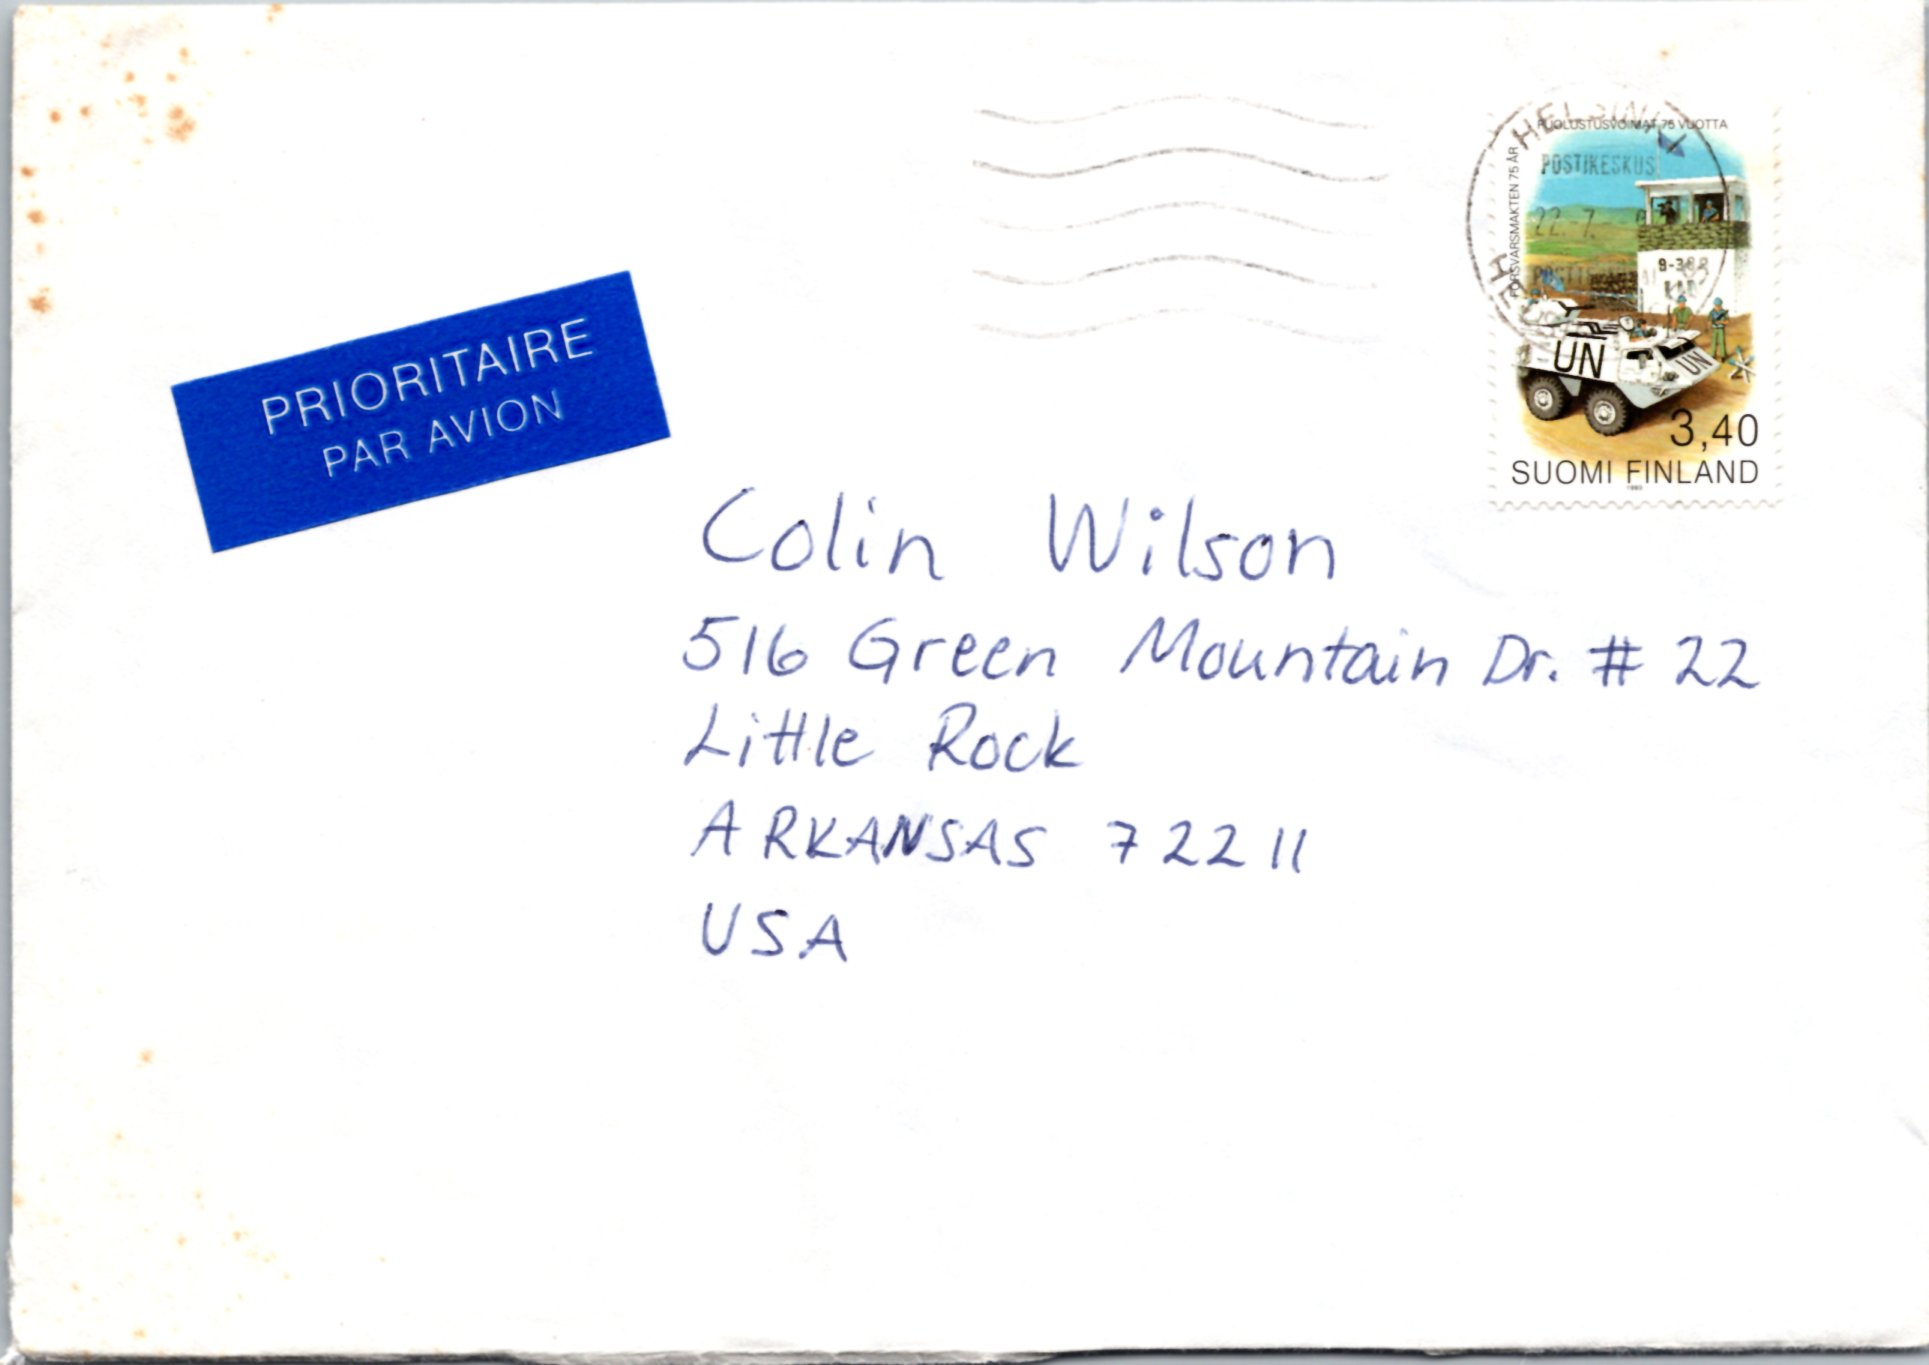 PRIORITAIRE
PAR AVION
HELSINKI
POSTIKESKUS
22.-7.
PUOLUSTUSVOIMAT 75 VUOTTA
FÖRSVARSMAKTEN 75 ÅR
UN
UN
3,40
SUOMI FINLAND
1993
Colin Wilson
516 Green Mountain Dr. # 22
Little Rock
ARKANSAS 72211
USA